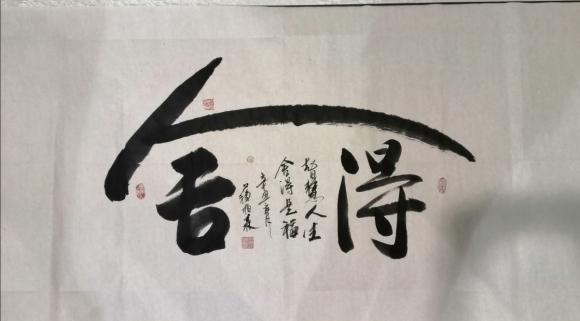 舍得
智慧人生
舍得是福
辛丑